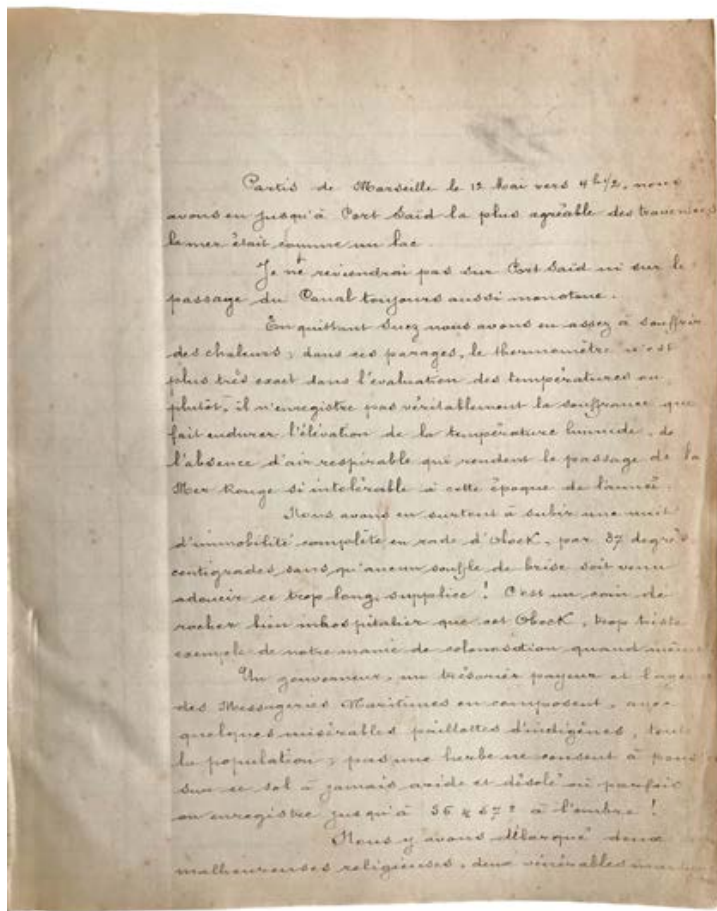 Partis de Marseille le 12 Mai vers 4 h 1/2, nous
avons eu jusqu'à Port Saïd la plus agréable des traversées,
la mer était comme un lac.
Je ne reviendrai pas sur Port Saïd ni sur le
passage du Canal toujours aussi monotone.
En quittant Suez nous avons eu assez à souffrir
des chaleurs ; dans ces parages, le thermomètre n'est
plus très exact dans l'évaluation des températures ou
plutôt, il n'enregistre pas véritablement la souffrance que
fait endurer l'élévation de la température humide, de
l'absence d'air respirable qui rendent le passage de la
Mer Rouge si intolérable à cette époque de l'année.
Nous avons eu surtout à subir une nuit
d'immobilité complète en rade d'Obock, par 37 degrés
centigrades sans qu'aucun souffle de brise soit venu
adoucir ce trop long supplice ! C'est un coin de
rocher bien inhospitalier que cet Obock, trop triste
exemple de notre manie de colonisation quand même.
Un gouverneur, un trésorier payeur et l'agent
des Messageries Maritimes en composent, avec
quelques misérables paillottes d'indigènes, toute
la population ; pas une herbe ne consent à
sur ce sol à jamais aride et désolé où parfois
on enregistre jusqu'à à l'ombre !
Nous y avons débarqué deux
malheureuses religieuses, deux vénérables